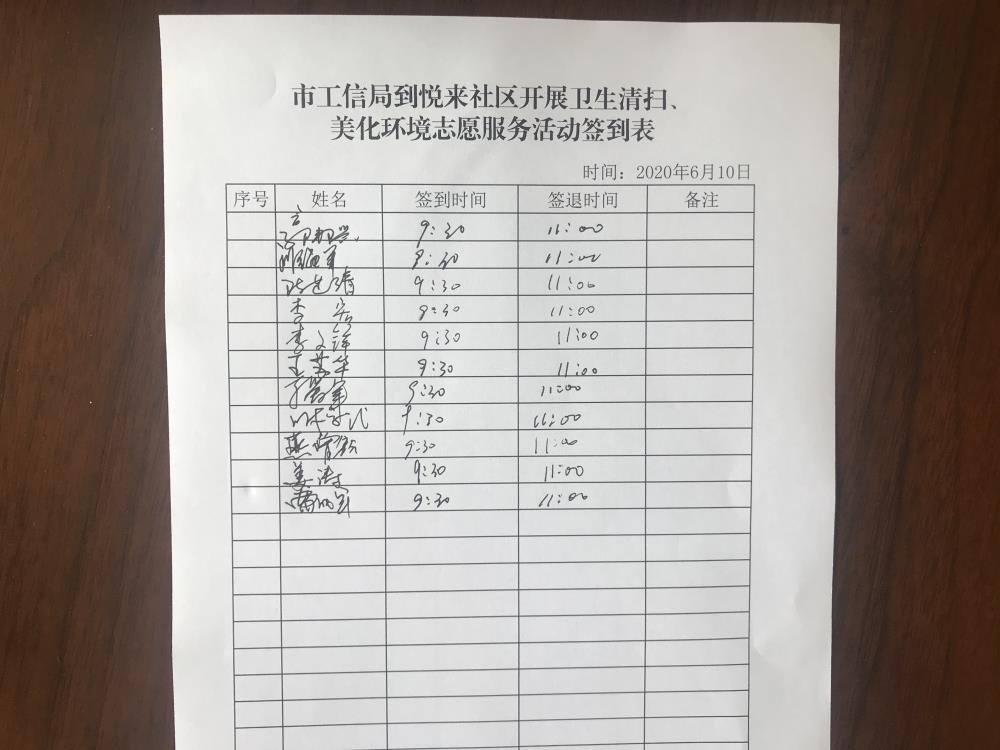 市工信局到悦来社区开展卫生清扫、
美化环境志愿服务活动签到表
时间：2020年6月10日
序号 姓名 签到时间 签退时间 备注
9:30 11:00
9:30 11:00
9:30 11:00
李宏 9:30 11:00
李文锋 9:30 11:00
王苏华 9:30 11:00
9:30 11:00
9:30 11:00
9:30 11:00
姜涛 9:30 11:00
9:30 11:00